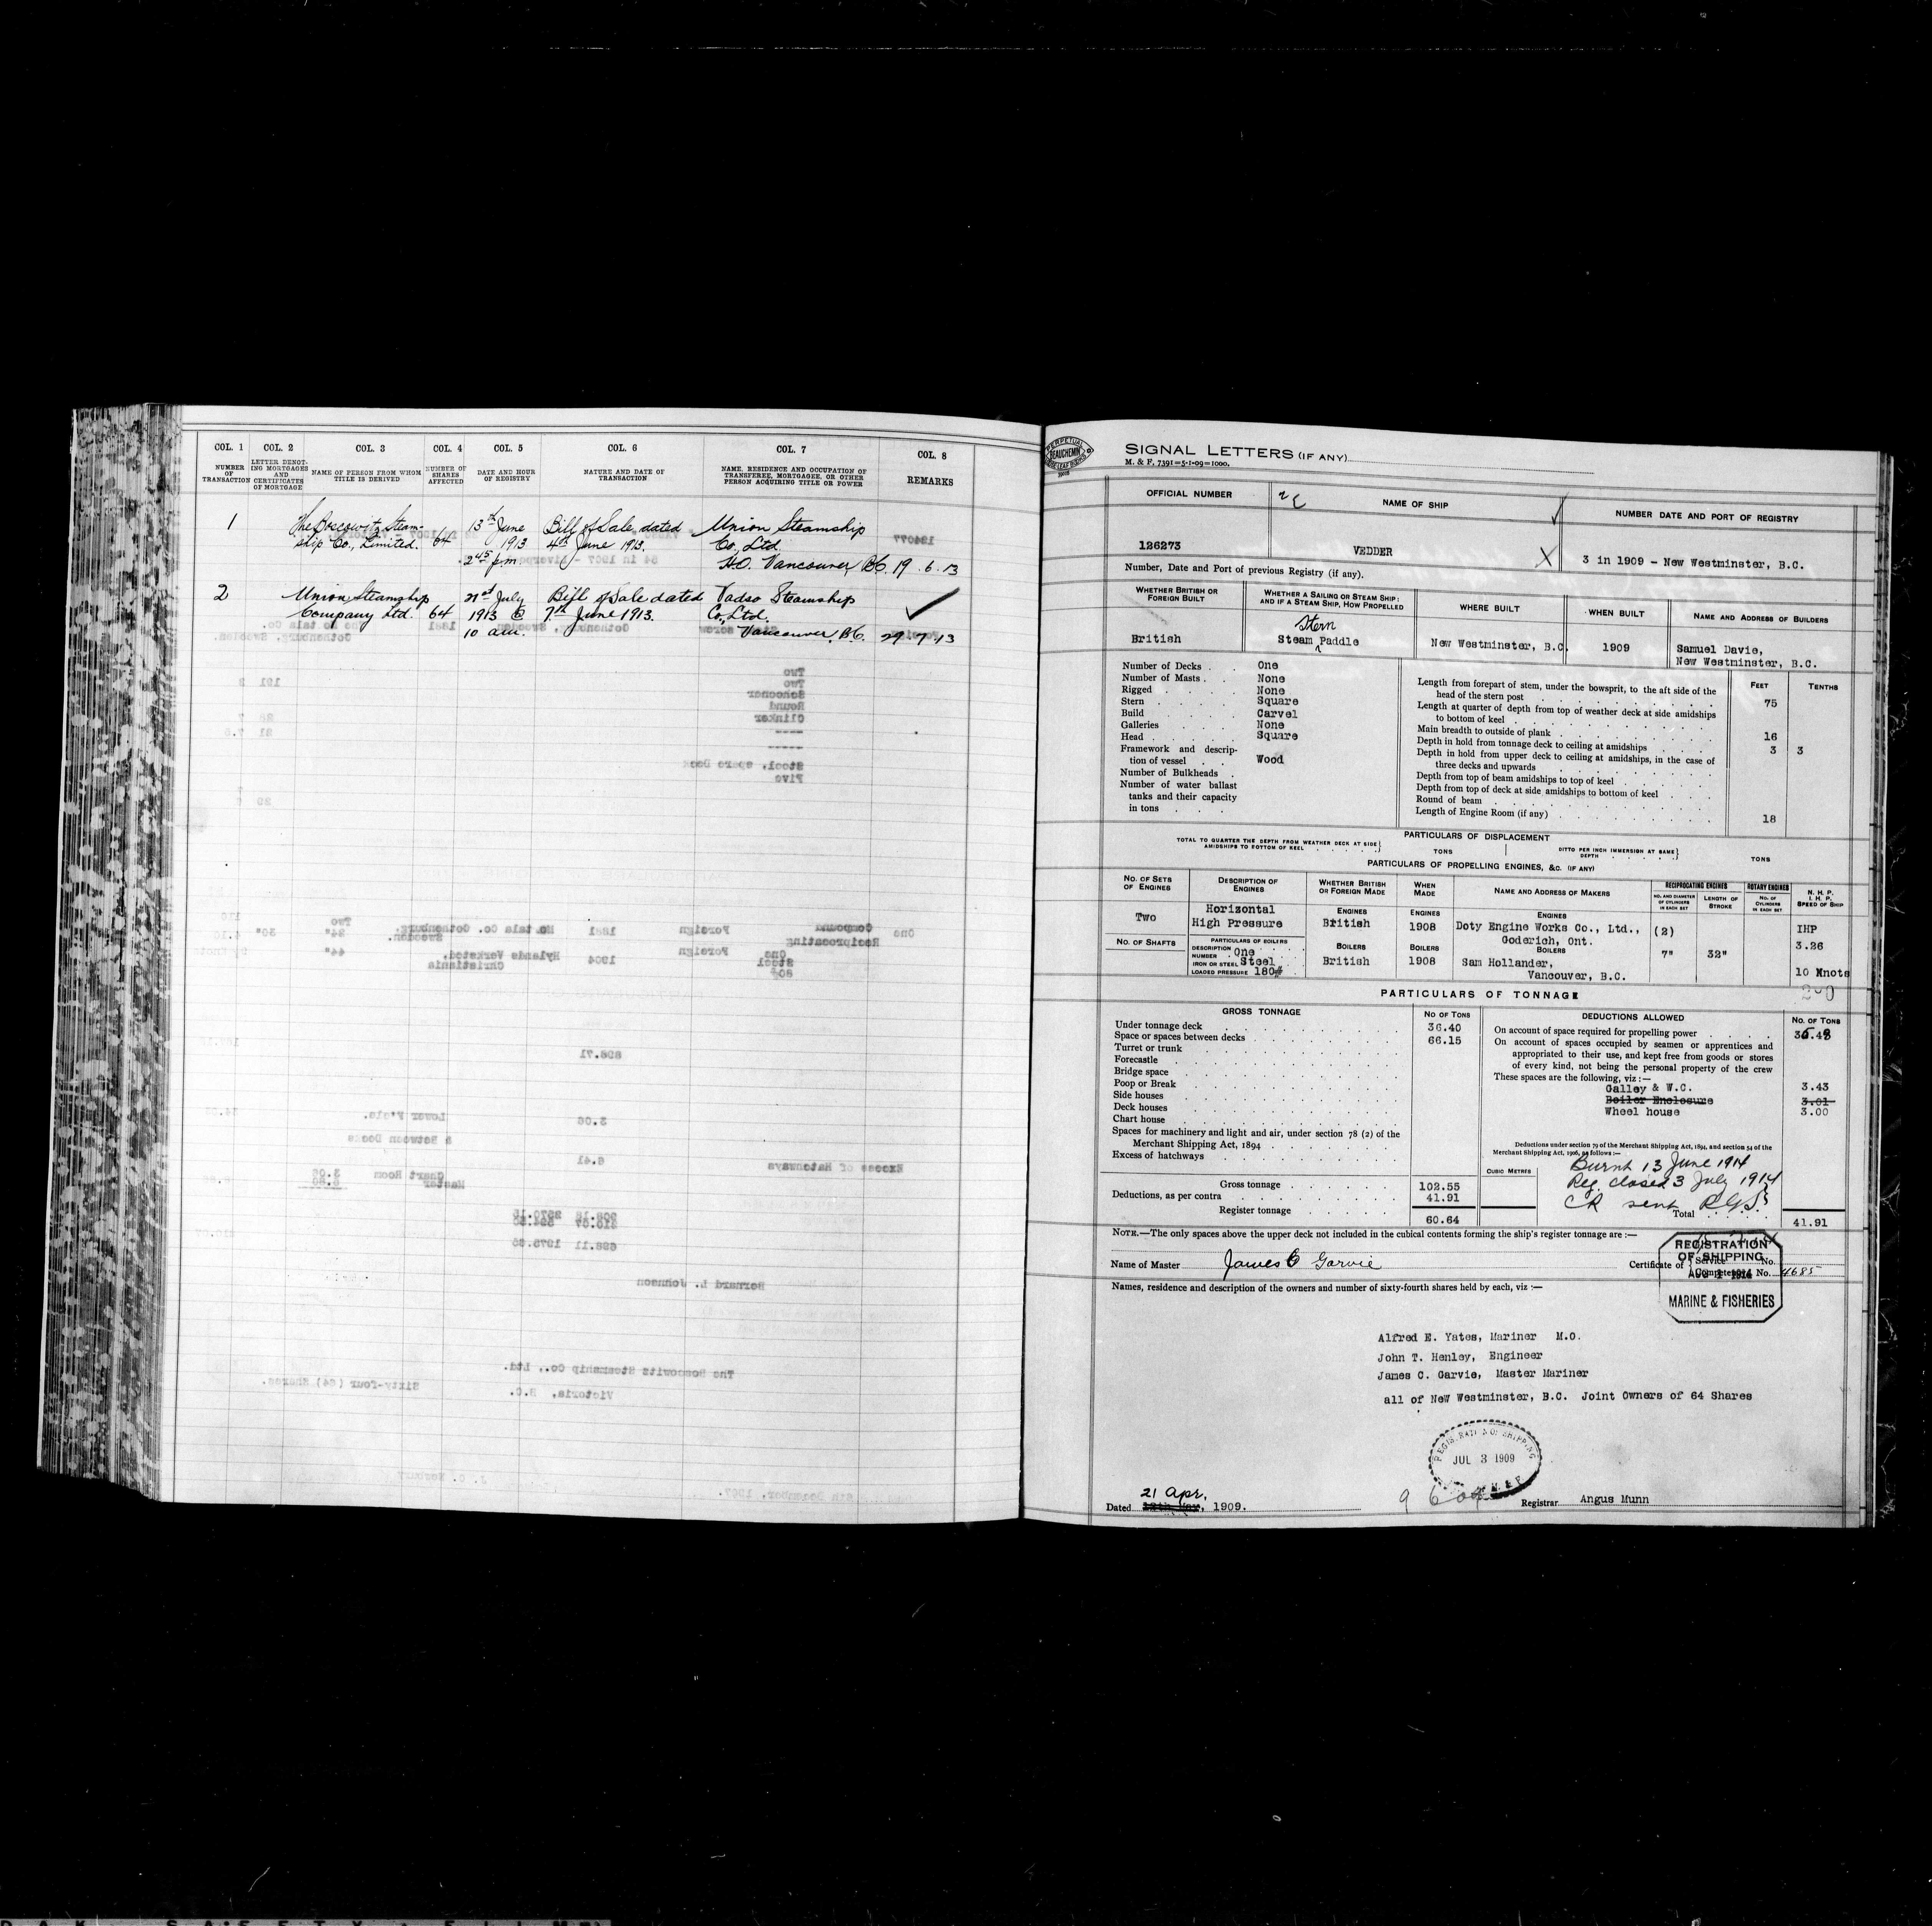 COL. 1 COL. 2 COL. 3 COL. 4 COL. 5 COL. 6 COL. 7 COL. 8
NUMBER OF TRANSACTION
LETTER DENOTING MORTGAGES AND CERTIFICATES OF MORTGAGE
NAME OF PERSON FROM WHOM TITLE IS DERIVED
NUMBER OF SHARES AFFECTED
DATE AND HOUR OF REGISTRY
NATURE AND DATE OF TRANSACTION
NAME, RESIDENCE AND OCCUPATION OF TRANSFEREE, MORTGAGEE, OR OTHER PERSON ACQUIRING TITLE OR POWER
REMARKS
1 The Boscowitz Steam- 13th June Bill of Sale dated Union Steamship
ship Co., Limited. 64 1913 4th June 1913. Co., Ltd.
2 45 pm H.O. Vancouver, B.C. 19 . 6 . 13
2 Union Steamship 21st July Bill of Sale dated Vadso Steamship
Company Ltd. 64 1913 @ 7th June 1913. Co., Ltd.
10 a.m. Vancouver, B.C. 29 . 7 . 13
PERPETUAL
BEAUCHEMIN
LOOSE LEAF BINDERS
SIGNAL LETTERS (IF ANY)
M. & F. 7391=5-1-09=1000.
OFFICIAL NUMBER NAME OF SHIP NUMBER DATE AND PORT OF REGISTRY
126273 VEDDER X 3 in 1909 - New Westminster, B.C.
Number, Date and Port of previous Registry (if any).
WHETHER BRITISH OR FOREIGN BUILT
WHETHER A SAILING OR STEAM SHIP; AND IF A STEAM SHIP, HOW PROPELLED
WHERE BUILT
WHEN BUILT
NAME AND ADDRESS OF BUILDERS
Stern
British Steam Paddle New Westminster, B.C. 1909 Samuel Davie,
New Westminster, B.C.
Number of Decks . . One
Number of Masts . . None
Rigged . . . None
Stern . . . Square
Build . . . Carvel
Galleries . . . None
Head . . . Square
Framework and description of vessel . . Wood
Number of Bulkheads .
Number of water ballast tanks and their capacity in tons . . .
FEET TENTHS
Length from forepart of stem, under the bowsprit, to the aft side of the head of the stern post 75
Length at quarter of depth from top of weather deck at side amidships to bottom of keel
Main breadth to outside of plank 16
Depth in hold from tonnage deck to ceiling at amidships 3 3
Depth in hold from upper deck to ceiling at amidships, in the case of three decks and upwards
Depth from top of beam amidships to top of keel
Depth from top of deck at side amidships to bottom of keel
Round of beam
Length of Engine Room (if any) 18
PARTICULARS OF DISPLACEMENT
TOTAL TO QUARTER THE DEPTH FROM WEATHER DECK AT SIDE AMIDSHIPS TO BOTTOM OF KEEL TONS DITTO PER INCH IMMERSION AT SAME DEPTH TONS
PARTICULARS OF PROPELLING ENGINES, &C. (IF ANY)
NO. OF SETS OF ENGINES
DESCRIPTION OF ENGINES
WHETHER BRITISH OR FOREIGN MADE
WHEN MADE
NAME AND ADDRESS OF MAKERS
RECIPROCATING ENGINES
NO. AND DIAMETER OF CYLINDERS IN EACH SET
LENGTH OF STROKE
ROTARY ENGINES
NO. OF CYLINDERS IN EACH SET
N. H. P.
I. H. P.
SPEED OF SHIP
Two
Horizontal
High Pressure
ENGINES British
ENGINES 1908
ENGINES
Doty Engine Works Co., Ltd.,
Goderich, Ont.
(2)
IHP
3.26
NO. OF SHAFTS
PARTICULARS OF BOILERS
DESCRIPTION
NUMBER One
IRON OR STEEL Steel
LOADED PRESSURE 180#
BOILERS British
BOILERS 1908
BOILERS
Sam Hollander,
Vancouver, B.C.
7" 32"
10 Knots
PARTICULARS OF TONNAGE
GROSS TONNAGE NO OF TONS
Under tonnage deck 36.40
Space or spaces between decks 66.15
Turret or trunk
Forecastle
Bridge space
Poop or Break
Side houses
Deck houses
Chart house
Spaces for machinery and light and air, under section 78 (2) of the Merchant Shipping Act, 1894
Excess of hatchways
Gross tonnage 102.55
Deductions, as per contra 41.91
Register tonnage 60.64
DEDUCTIONS ALLOWED NO. OF TONS
On account of space required for propelling power 35.48
On account of spaces occupied by seamen or apprentices and
appropriated to their use, and kept free from goods or stores
of every kind, not being the personal property of the crew
These spaces are the following, viz :—
Galley & W.C. 3.43
Boiler Enclosure 3.01
Wheel house 3.00
Deductions under section 79 of the Merchant Shipping Act, 1894, and section 54 of the
Merchant Shipping Act, 1906, as follows :—
CUBIC METRES
Burnt 13 June 1914
Reg. closed 3 July 1914
CR sent
Total 41.91
NOTE.—The only spaces above the upper deck not included in the cubical contents forming the ship's register tonnage are :—
Name of Master James C Garvie Certificate of Service No.
Competency No. 4685
REGISTRATION
OF SHIPPING
AUG 1 1914
MARINE & FISHERIES
Names, residence and description of the owners and number of sixty-fourth shares held by each, viz :—
Alfred E. Yates, Mariner M.O.
John T. Henley, Engineer
James C. Garvie, Master Mariner
all of New Westminster, B.C. Joint Owners of 64 Shares
REGISTRATION OF SHIPPING
JUL 3 1909
M. & F.
21 Apr.
Dated , 1909.
Registrar Angus Munn